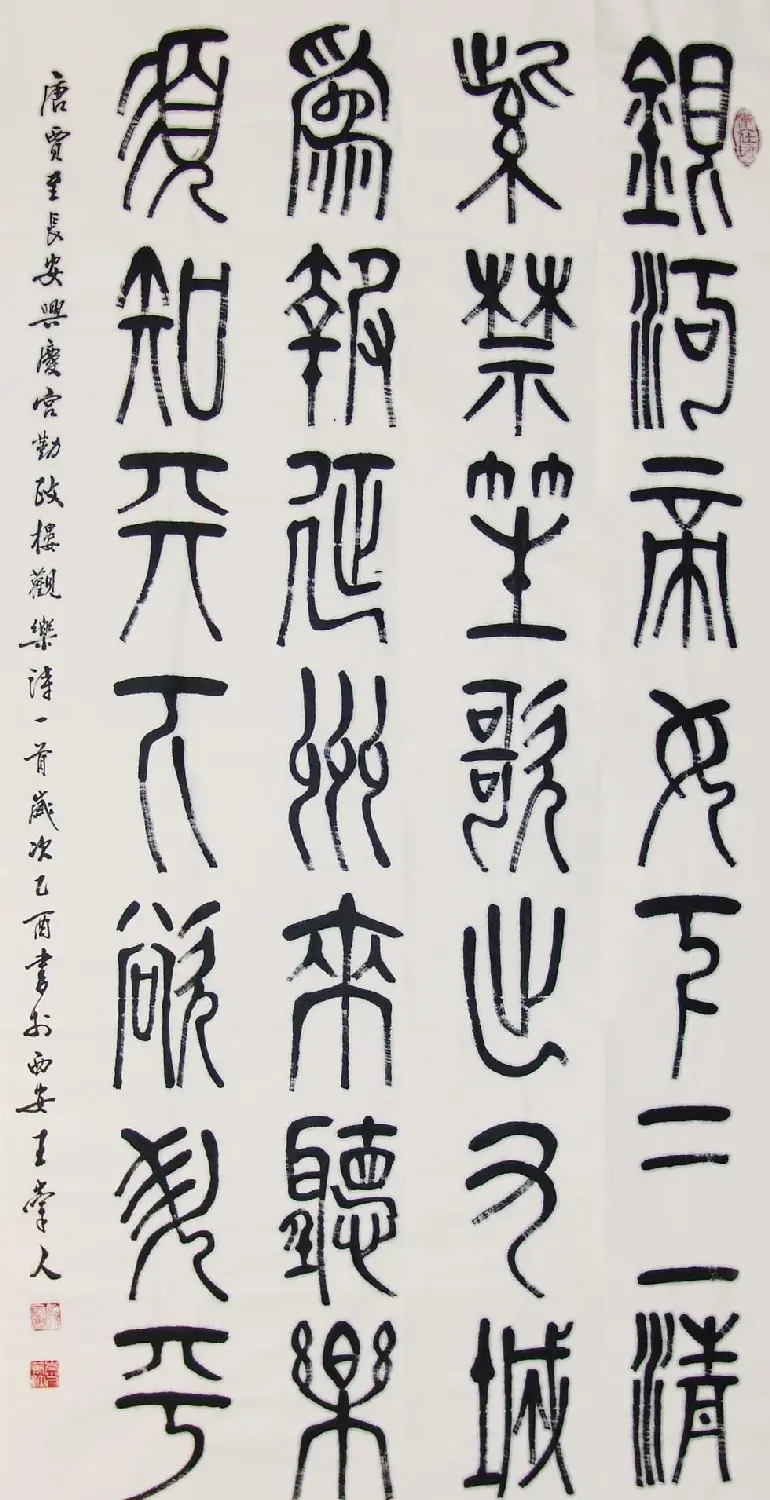 銀河帝女下三清
紫禁笙歌出九城
爲報延州來聽樂
須知天下欲升平
唐賈至長安興慶宮勤政樓觀樂詩一首歲次乙酉書於西安王崇人